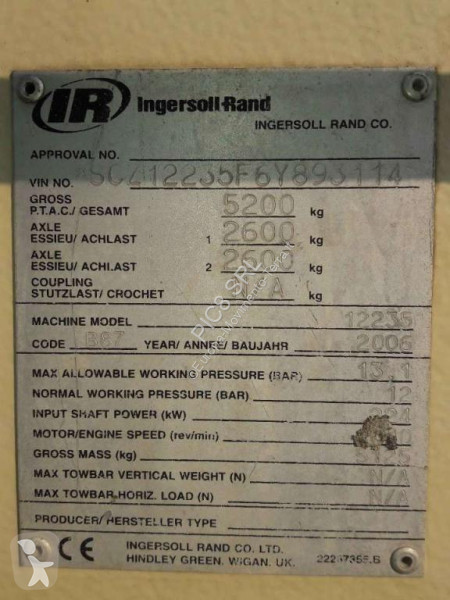 IR Ingersoll-Rand
INGERSOLL RAND CO.
APPROVAL NO.
VIN NO.
GROSS
P.T.A.C./ GESAMT 5200 kg
AXLE
ESSIEU/ ACHLAST 1 2600 kg
AXLE
ESSIEU/ ACHLAST 2 2600 kg
COUPLING
STUTZLAST/ CROCHET A kg
MACHINE MODEL 12235
CODE B67 YEAR/ ANNEE/ BAUJAHR 2006
MAX ALLOWABLE WORKING PRESSURE (BAR) 13,1
NORMAL WORKING PRESSURE (BAR) 12
INPUT SHAFT POWER (kW) 224
MOTOR/ENGINE SPEED (rev/min)
GROSS MASS (kg)
MAX TOWBAR VERTICAL WEIGHT (N) N/A
MAX TOWBAR HORIZ. LOAD (N) N/A
PRODUCER/ HERSTELLER TYPE
CE INGERSOLL RAND CO. LTD.
HINDLEY GREEN, WIGAN. UK.
© PIC8 SRL